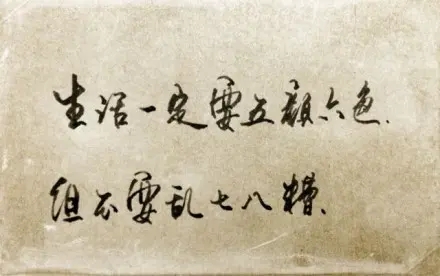 生活一定要五颜六色.
但不要乱七八糟.